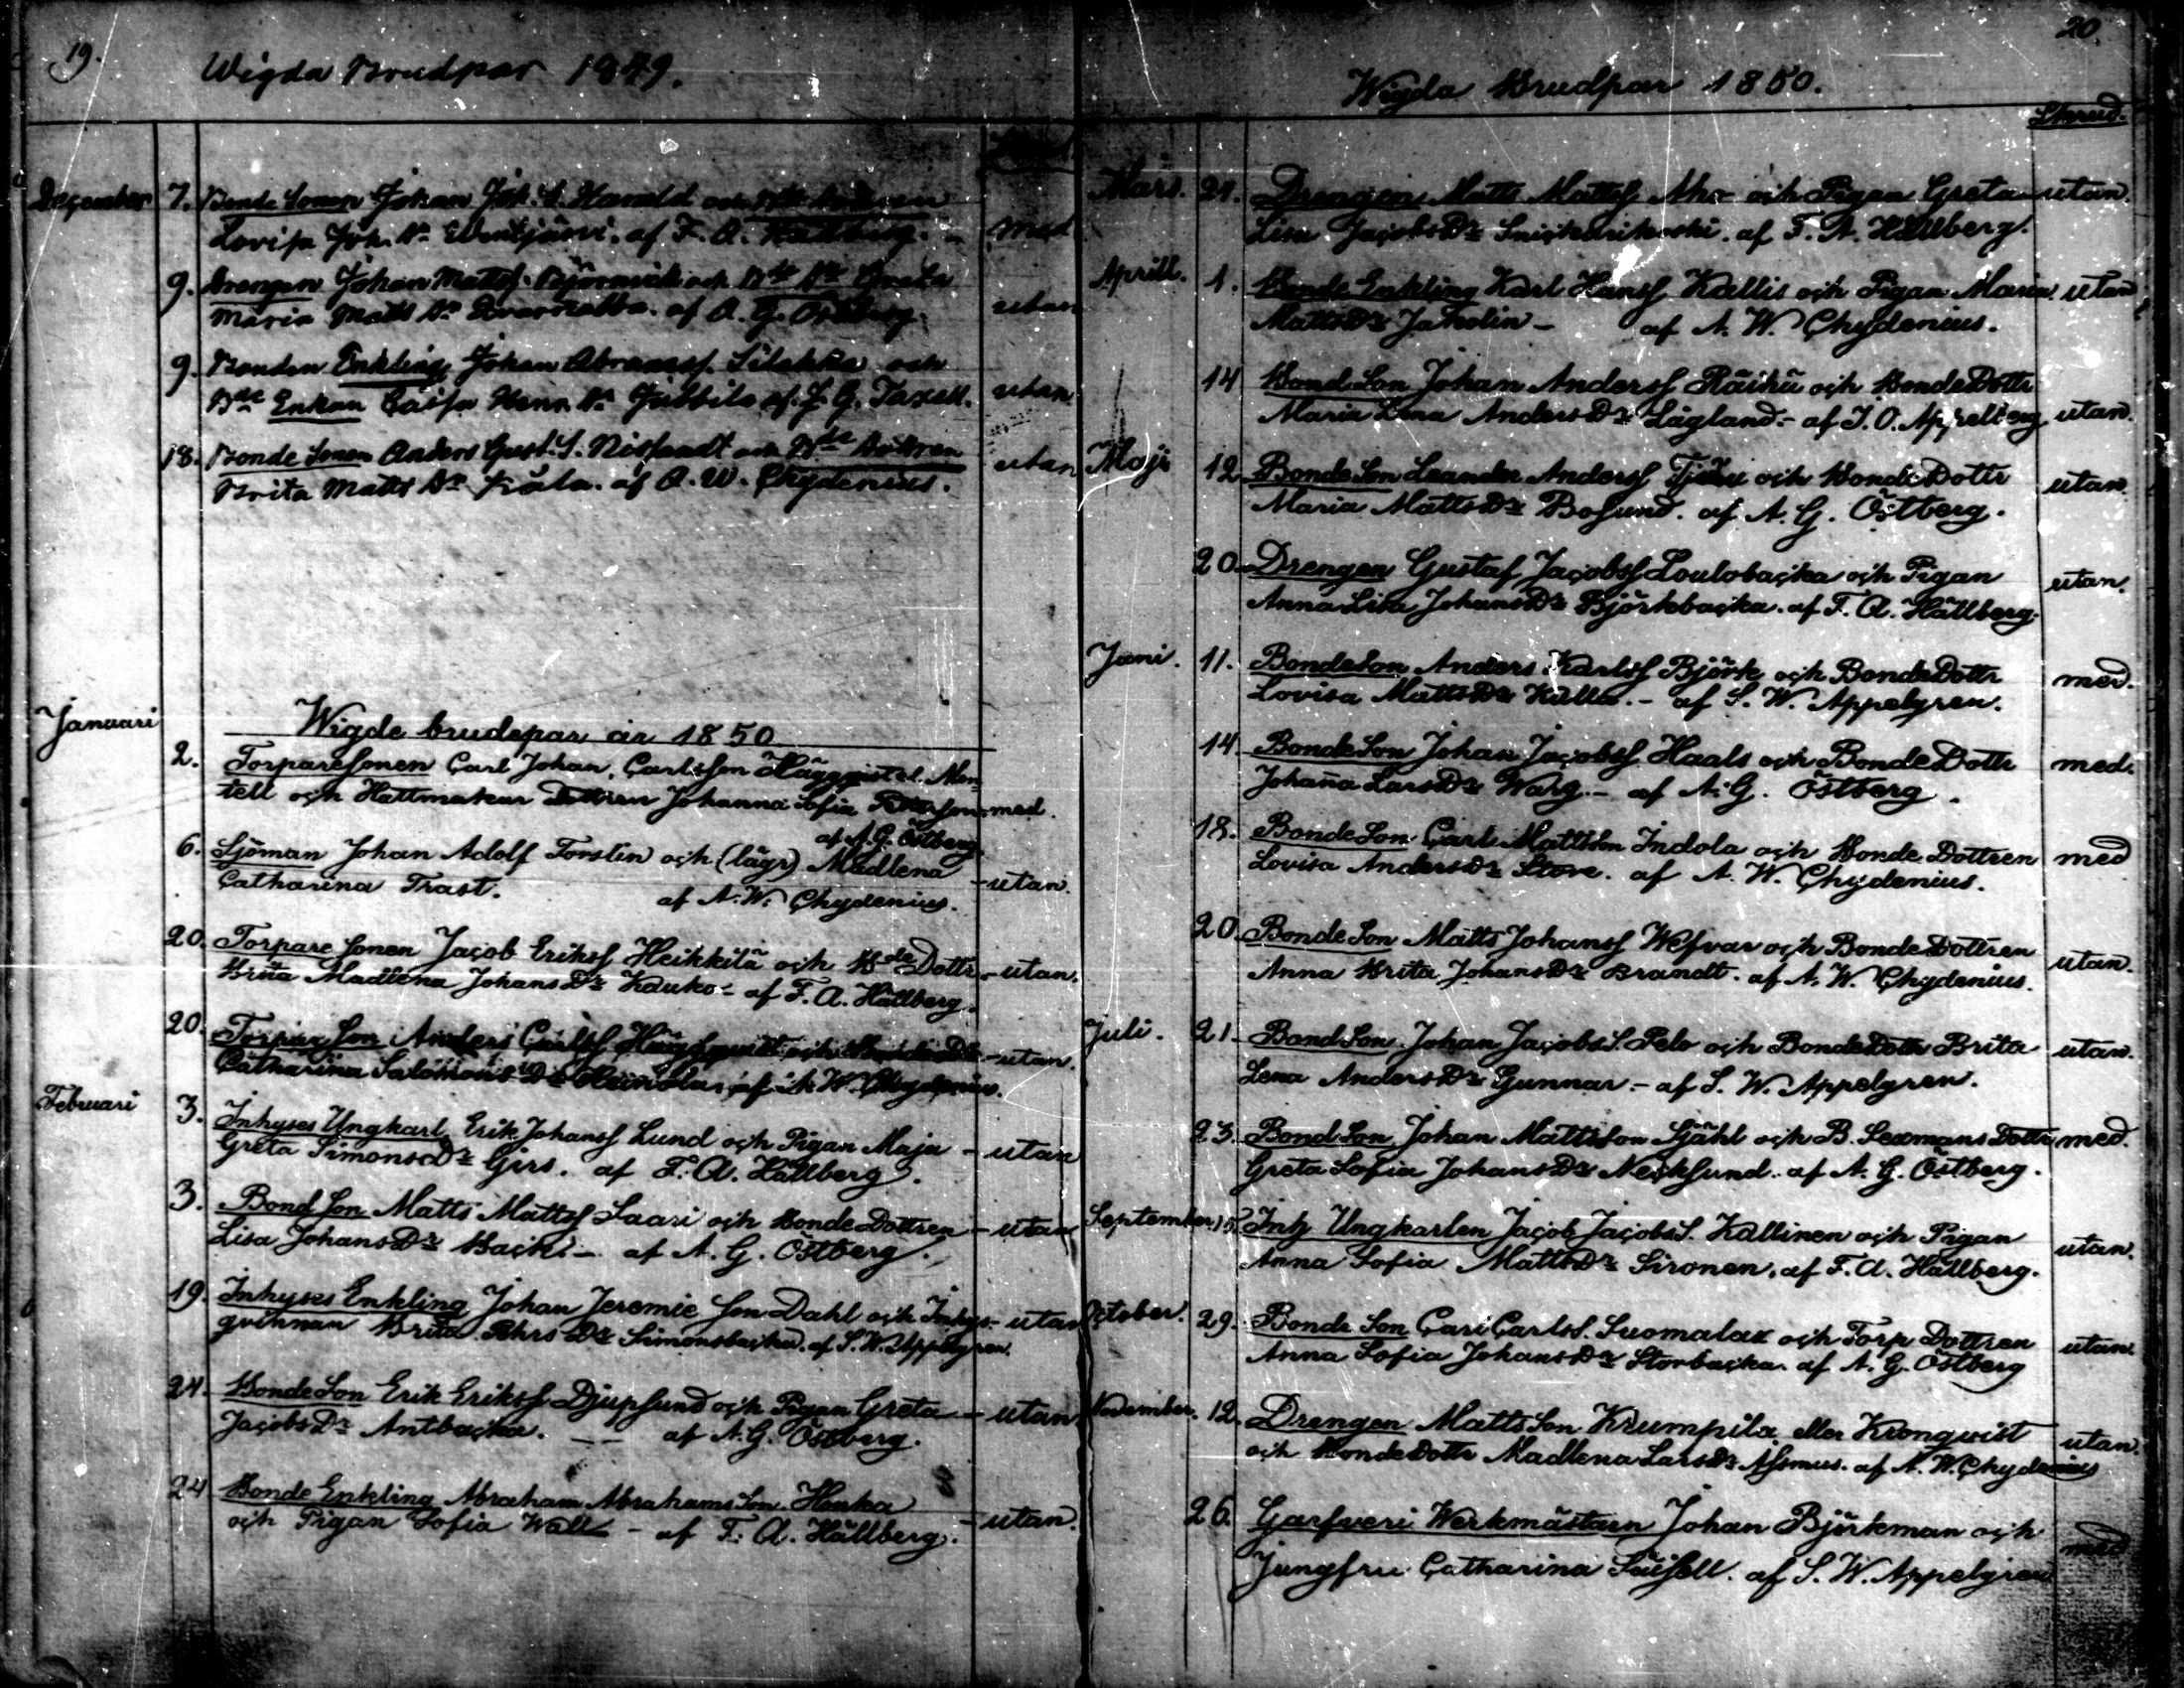 19.
Wigda Brudpar 1849.
December 7. Bonde Sonen Johan Joh. S. Harald och Bde Dottren
Lovisa Joh. Dr af F. A. Hällberg. - med
9. Drengen Johan Matts. Björnvik och Bde Dtr Greta
Maria Matts Dr af A. G. Östberg. utan
9. Bonden Enkling Johan Abrahamss. och
Bde Enkan Caisa Henr. Dr Jubbila af J. G. Taxell. utan
18. Bonde Sonen Anders Gust. S. och Bde Dottren
Brita Matts Dr Kåla. af A. W. Chydenius. utan
Januari
Wigde brudepar år 1850
2. Torparesonen Carl Johan, Carlsson Häggqvist el. Man-
tell och Hattmakar Dottren Johanna Sofia - med.
af A. G. Östberg.
6. Sjöman Johan Adolf Forslin och (lägr) Madlena
Catharina Trast. af A. W. Chydenius. - utan.
20. Torpare Sonen Jacob Erikss Heikkilä och Bde Dottr
Brita Madlena Johans Dr Kauko - af F. A. Hällberg. - utan.
20. Torpar Son Anders Carlss och
Catharina Salomons Dr af A. W. Chydenius. - utan.
Februari 3. Inhyses Ungkarl Erik Johanss Lund och Pigan Maja
Greta Simons Dr Girs. af F. A. Hällberg. - utan
3. Bond Son Matts Mattss Saari och Bonde Dottren
Lisa Johans Dr Backi - af A. G. Östberg. - utan
19. Inhyses Enkling Johan Jeremie Son Dahl och Inhys-
qvinnan Brita Dr Simonsbacka. af S. W. Appelgren. - utan
24. Bonde Son Erik Erikss Djupsund och Pigan Greta
Jacobs Dr Antbacka. af A. G. Östberg. - utan
24 Bonde Enkling Abraham Abrahams Son Houka
och Pigan Sofia Wall - af F. A. Hällberg. - utan.
20.
Wigda Brudpar 1850.
Skrud.
Mars. 24. Drengen Matts Mattss Aho - och Pigan Greta utan.
Lisa Jacobs Dr af F. A. Hällberg.
Aprill. 1. Bonde Enkling Karl Hanss Kallis och Pigan Maria utan
Matts Dr Jakolin - af A. W. Chydenius.
14 Bond Son Johan Anderss Räihä och Bonde Dottr
Maria Lena Anders Dr Lågland. - af J. O. Appelberg utan.
Maji 12 Bonde Son Leander Anderss och Bonde Dottr
Maria Matts Dr Bosund. af A. G. Östberg. utan.
20. Drengen Gustaf Jacobss Loulobacka och Pigan
Anna Lisa Johans Dr Björkbacka. af F. A. Hällberg. utan.
Juni. 11. Bonde Son Anders Karlss Björk och Bonde Dottr
Lovisa Matts Dr Kalla. - af S. W. Appelgren. med.
14 Bonde Son Johan Jacobss Haals och Bonde Dottr
Johanna Lars Dr Warg. - af A. G. Östberg. med.
18. Bonde Son Carl Mattsson Indola och Bonde Dottren
Lovisa Anders Dr Store. af A. W. Chydenius. med
20. Bonde Son Matts Johanss Wefvar och Bonde Dottren
Anna Brita Johans Dr Brandt. af A. W. Chydenius. utan.
Juli. 21. Bond Son Johan Jacobs S. Pelo och Bonde Dottr Brita
Lena Anders Dr Gunnar. - af S. W. Appelgren. utan.
23. Bond Son Johan Mattsson Sjähl och B. Sexmans Dottr med.
Greta Sofia Johans Dr Necksund. af A. G. Östberg.
September 15. Inh Ungkarlen Jacob Jacobs S. Kallinen och Pigan
Anna Sofia Matts Dr Sironen. af F. A. Hällberg. utan.
October. 29. Bonde Son Carl Carlss. Suomalax och Torp Dottren
Anna Sofia Johans Dr Storbacka. af A. G. Östberg utan.
November. 12. Drengen Matts Son Krumpila eller Kronqvist
och Bonde Dottr Madlena Lars Dr Assmus. af A. W. Chydenius utan.
26. Garfveri Werkmästarn Johan Björkman och
Jungfru Catharina af S. W. Appelgren med